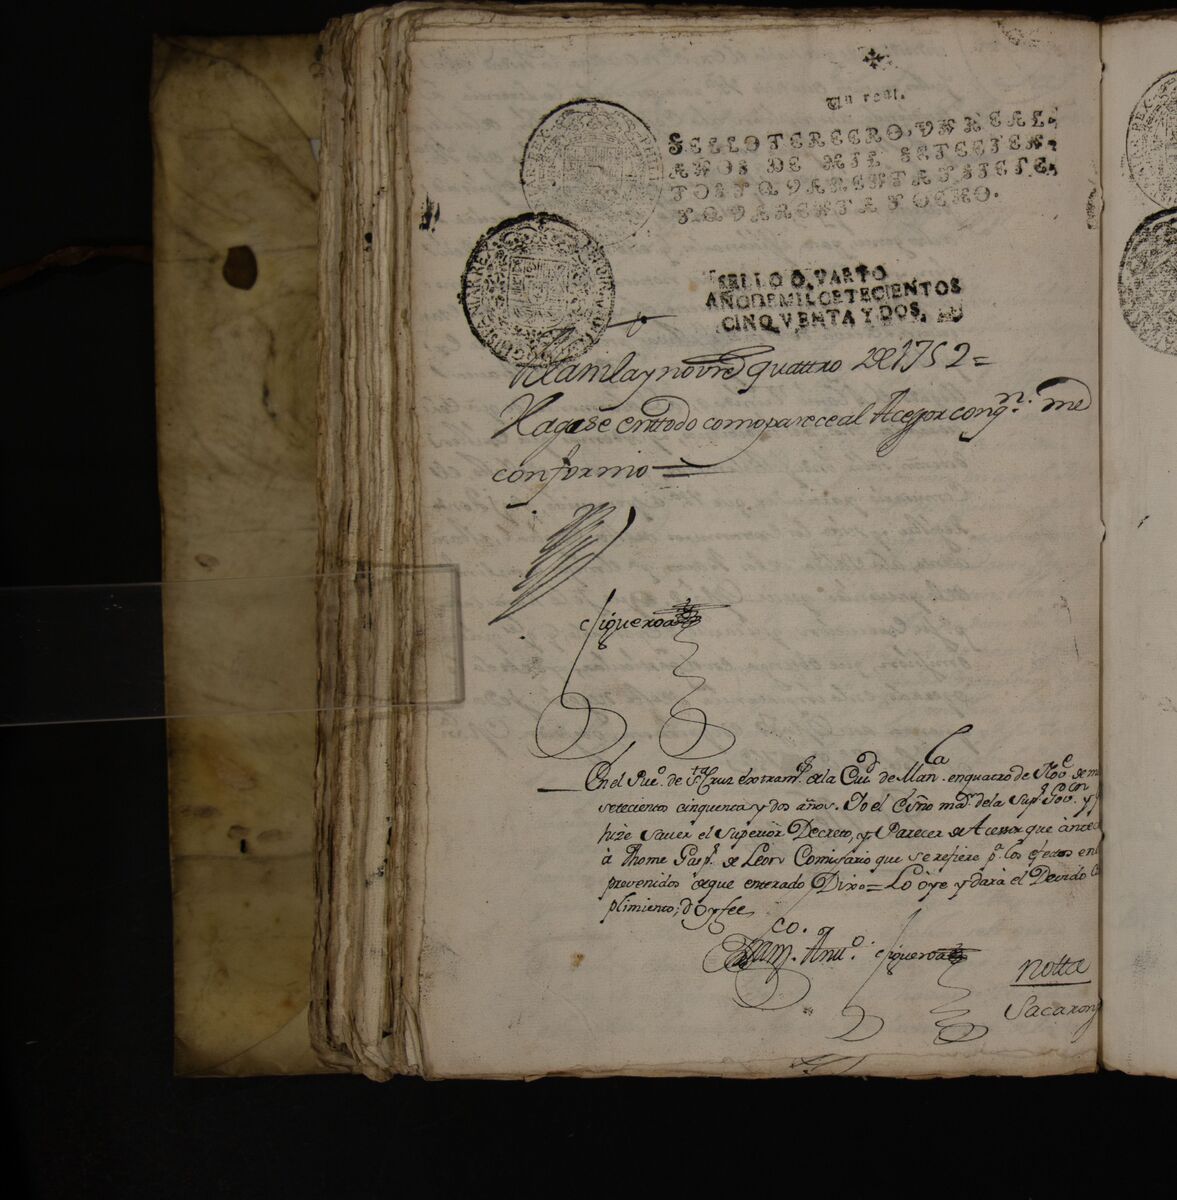 Un real.
SELLO TERCERO, VN REAL,
AÑOS DE MIL SETECIEN-
TOS Y QVARENTA Y SIETE,
Y QVARENTA Y OCHO.
SELLO QVARTO
AÑO DE MIL CETECIENTOS
CINQVENTA Y DOS.
Manila y novre quattro de 1752=
Hagase en ttodo como parece al Acessor con qn. me
conformo=
Figueroa
En el Pueo. de Sta. Cruz extramos. de la Ciud. de Manla. en quatro de Nove. de m
setecientos cinquenta y dos años. Yo el Esño mar. de la Supr. Govon. y g
hize saver el Superior Decreto, y Parecer de Acessor que antece
à Thome Gaspr. de Leon Comisario que se refiere pa. los efectos en
prevenidos de que enterado Dixo= Lo òye y darà el Devido C
plimiento, doy fee
Franco. Anto. Figueroa
Notta
Sacaron